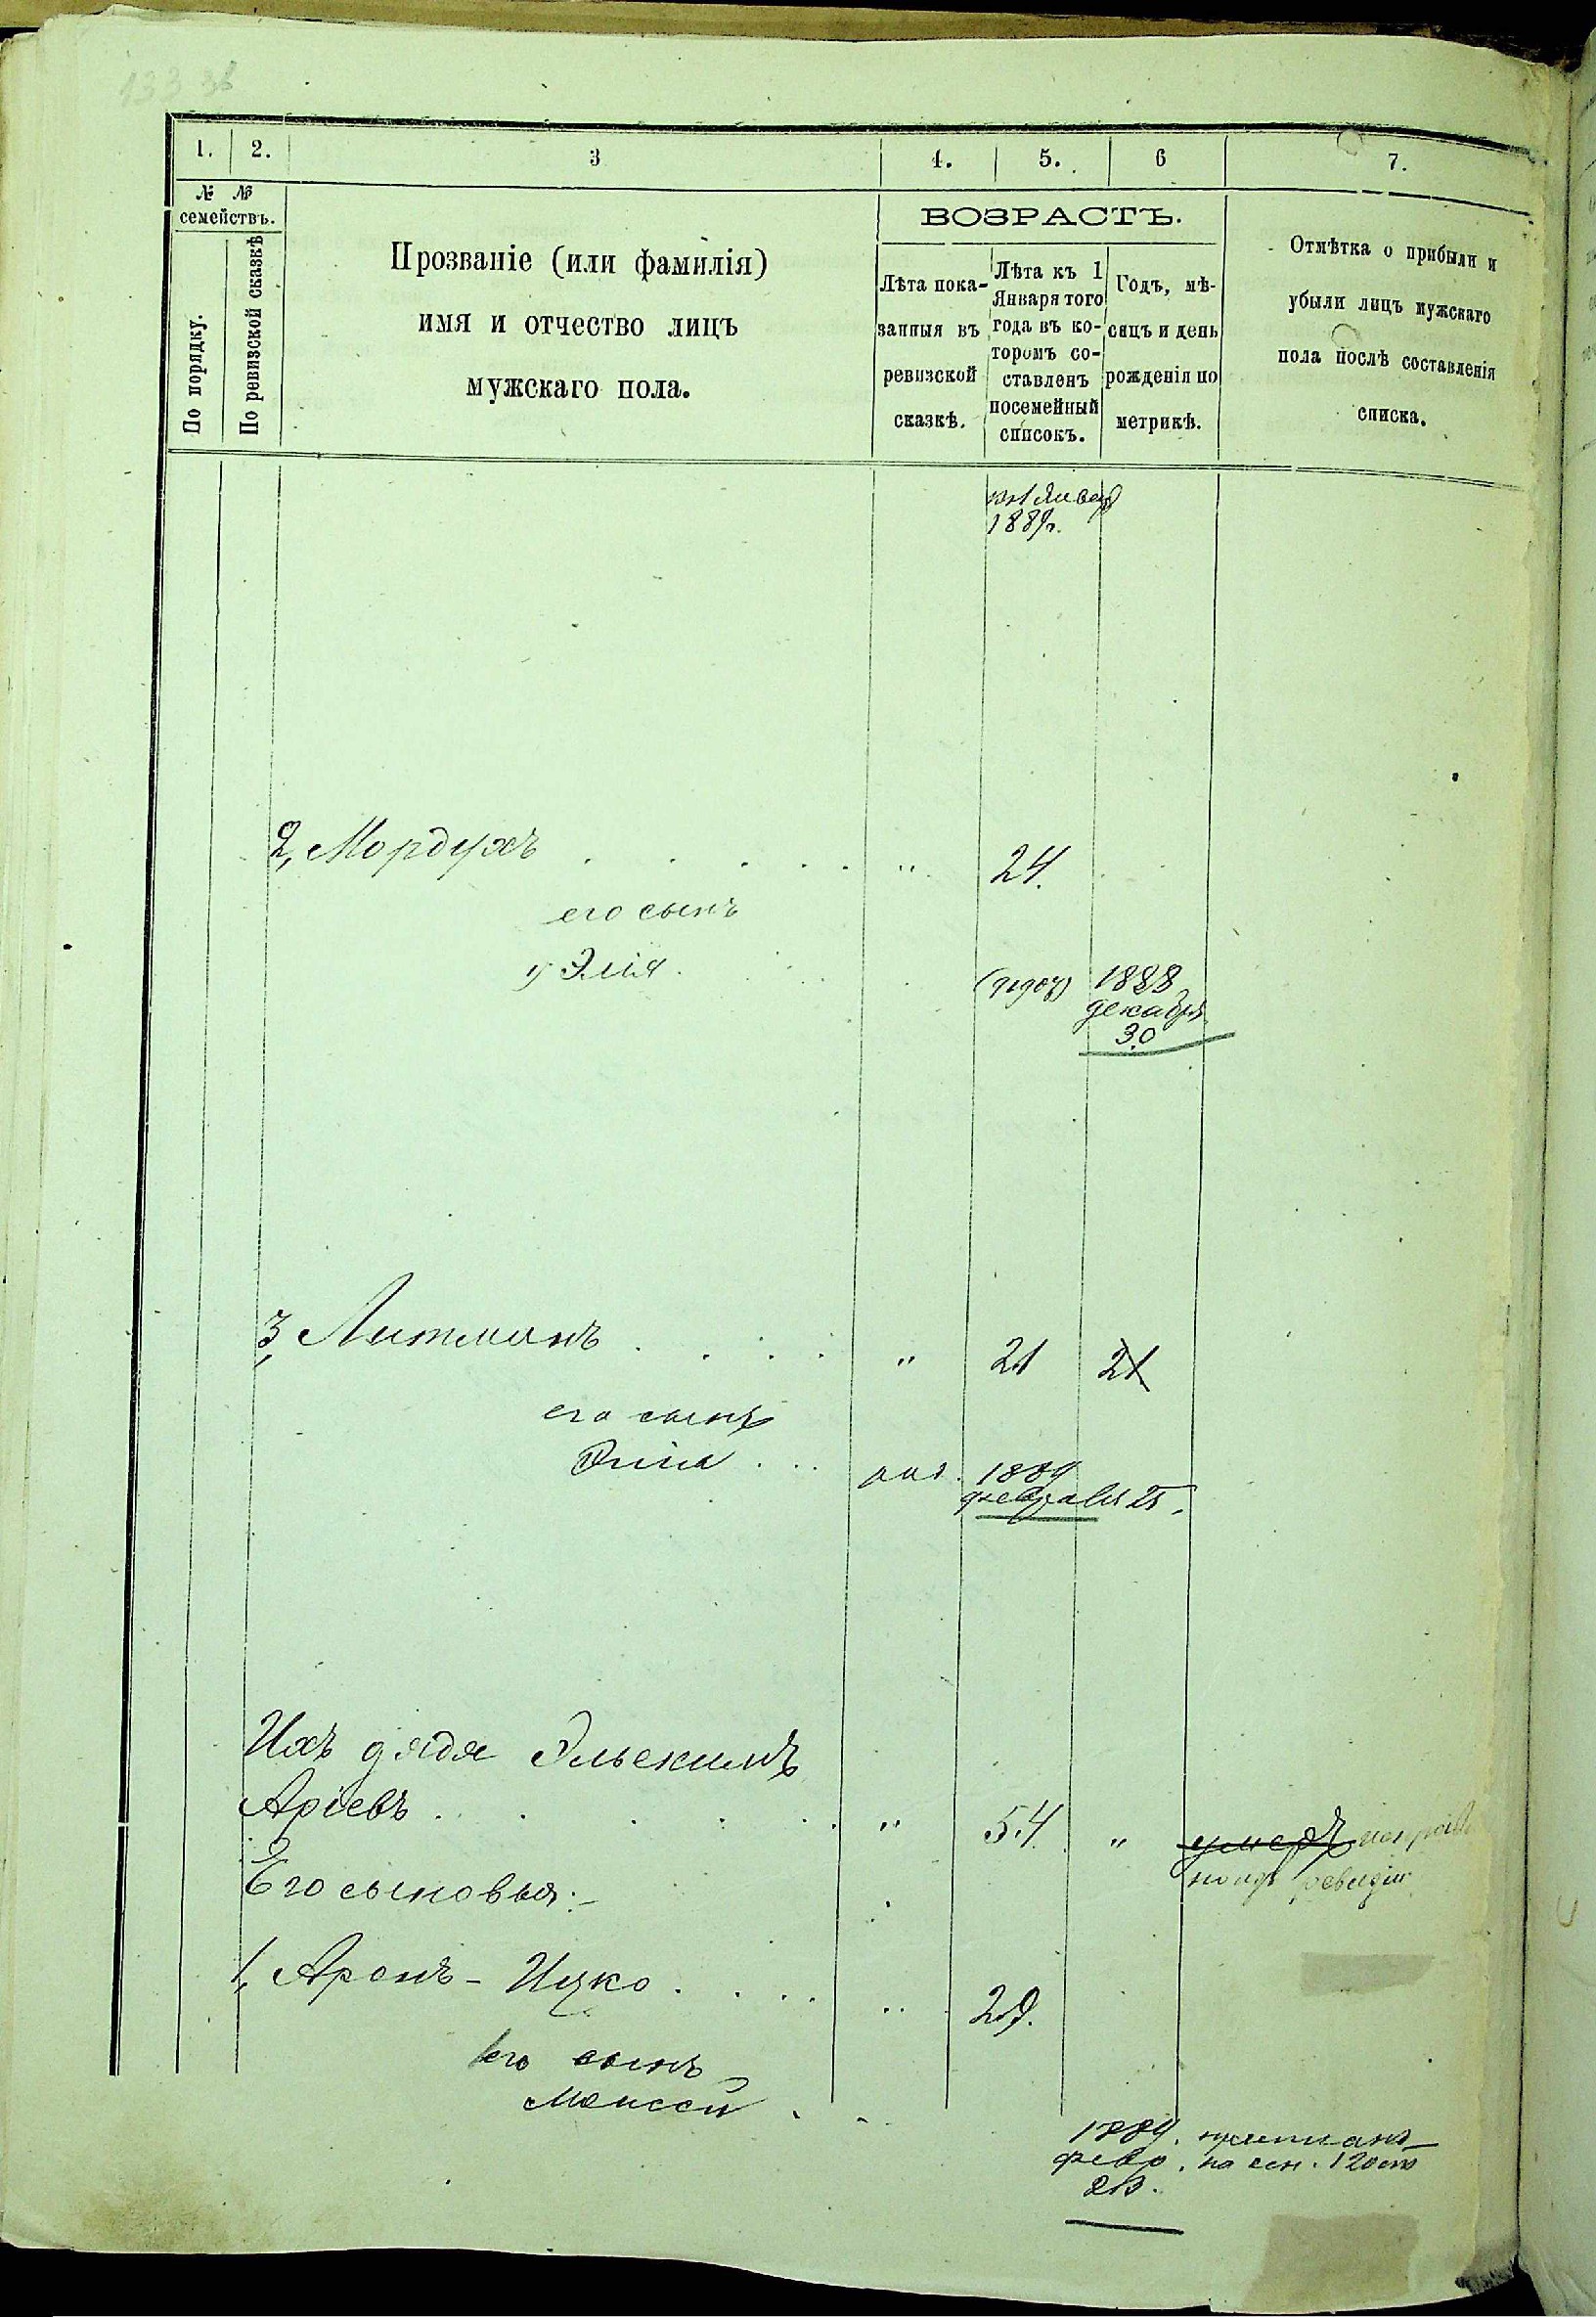 133 зв
1. 2. 3 4. 5. 6 7.
№ №
семействъ.
По порядку.
По ревизской сказкѣ
Прозваніе (или фамилія)
имя и отчество лицъ
мужскаго пола.
ВОЗРАСТЪ.
Лѣта пока-
занныя въ
ревизской
сказкѣ.
Лѣта къ 1
Января того
года въ ко-
торомъ со-
ставленъ
посемейный
списокъ.
Годъ, мѣ-
сяцъ и день
рожденія по
метрикѣ.
Отмѣтка о прибыли и
убыли лицъ мужскаго
пола послѣ составленія
списка.
на 1 Январ
1889г.
2, Мордухъ . . . . . " 24.
его сынъ
1) Элія . 1888
декабря
30
3, Литманъ . . . . " 21 21
его сынъ
Элія . . . 1889
февраля 25.
Ихъ дядя Эльекимъ
Аріевъ . . . . " 54 " умеръ
ревизіи
Его сыновья:-
1, Аронъ - Ицко . . . . " 29.
Его сынъ
Моисей . . 1889.
февр. на осн. 120 ст
23.